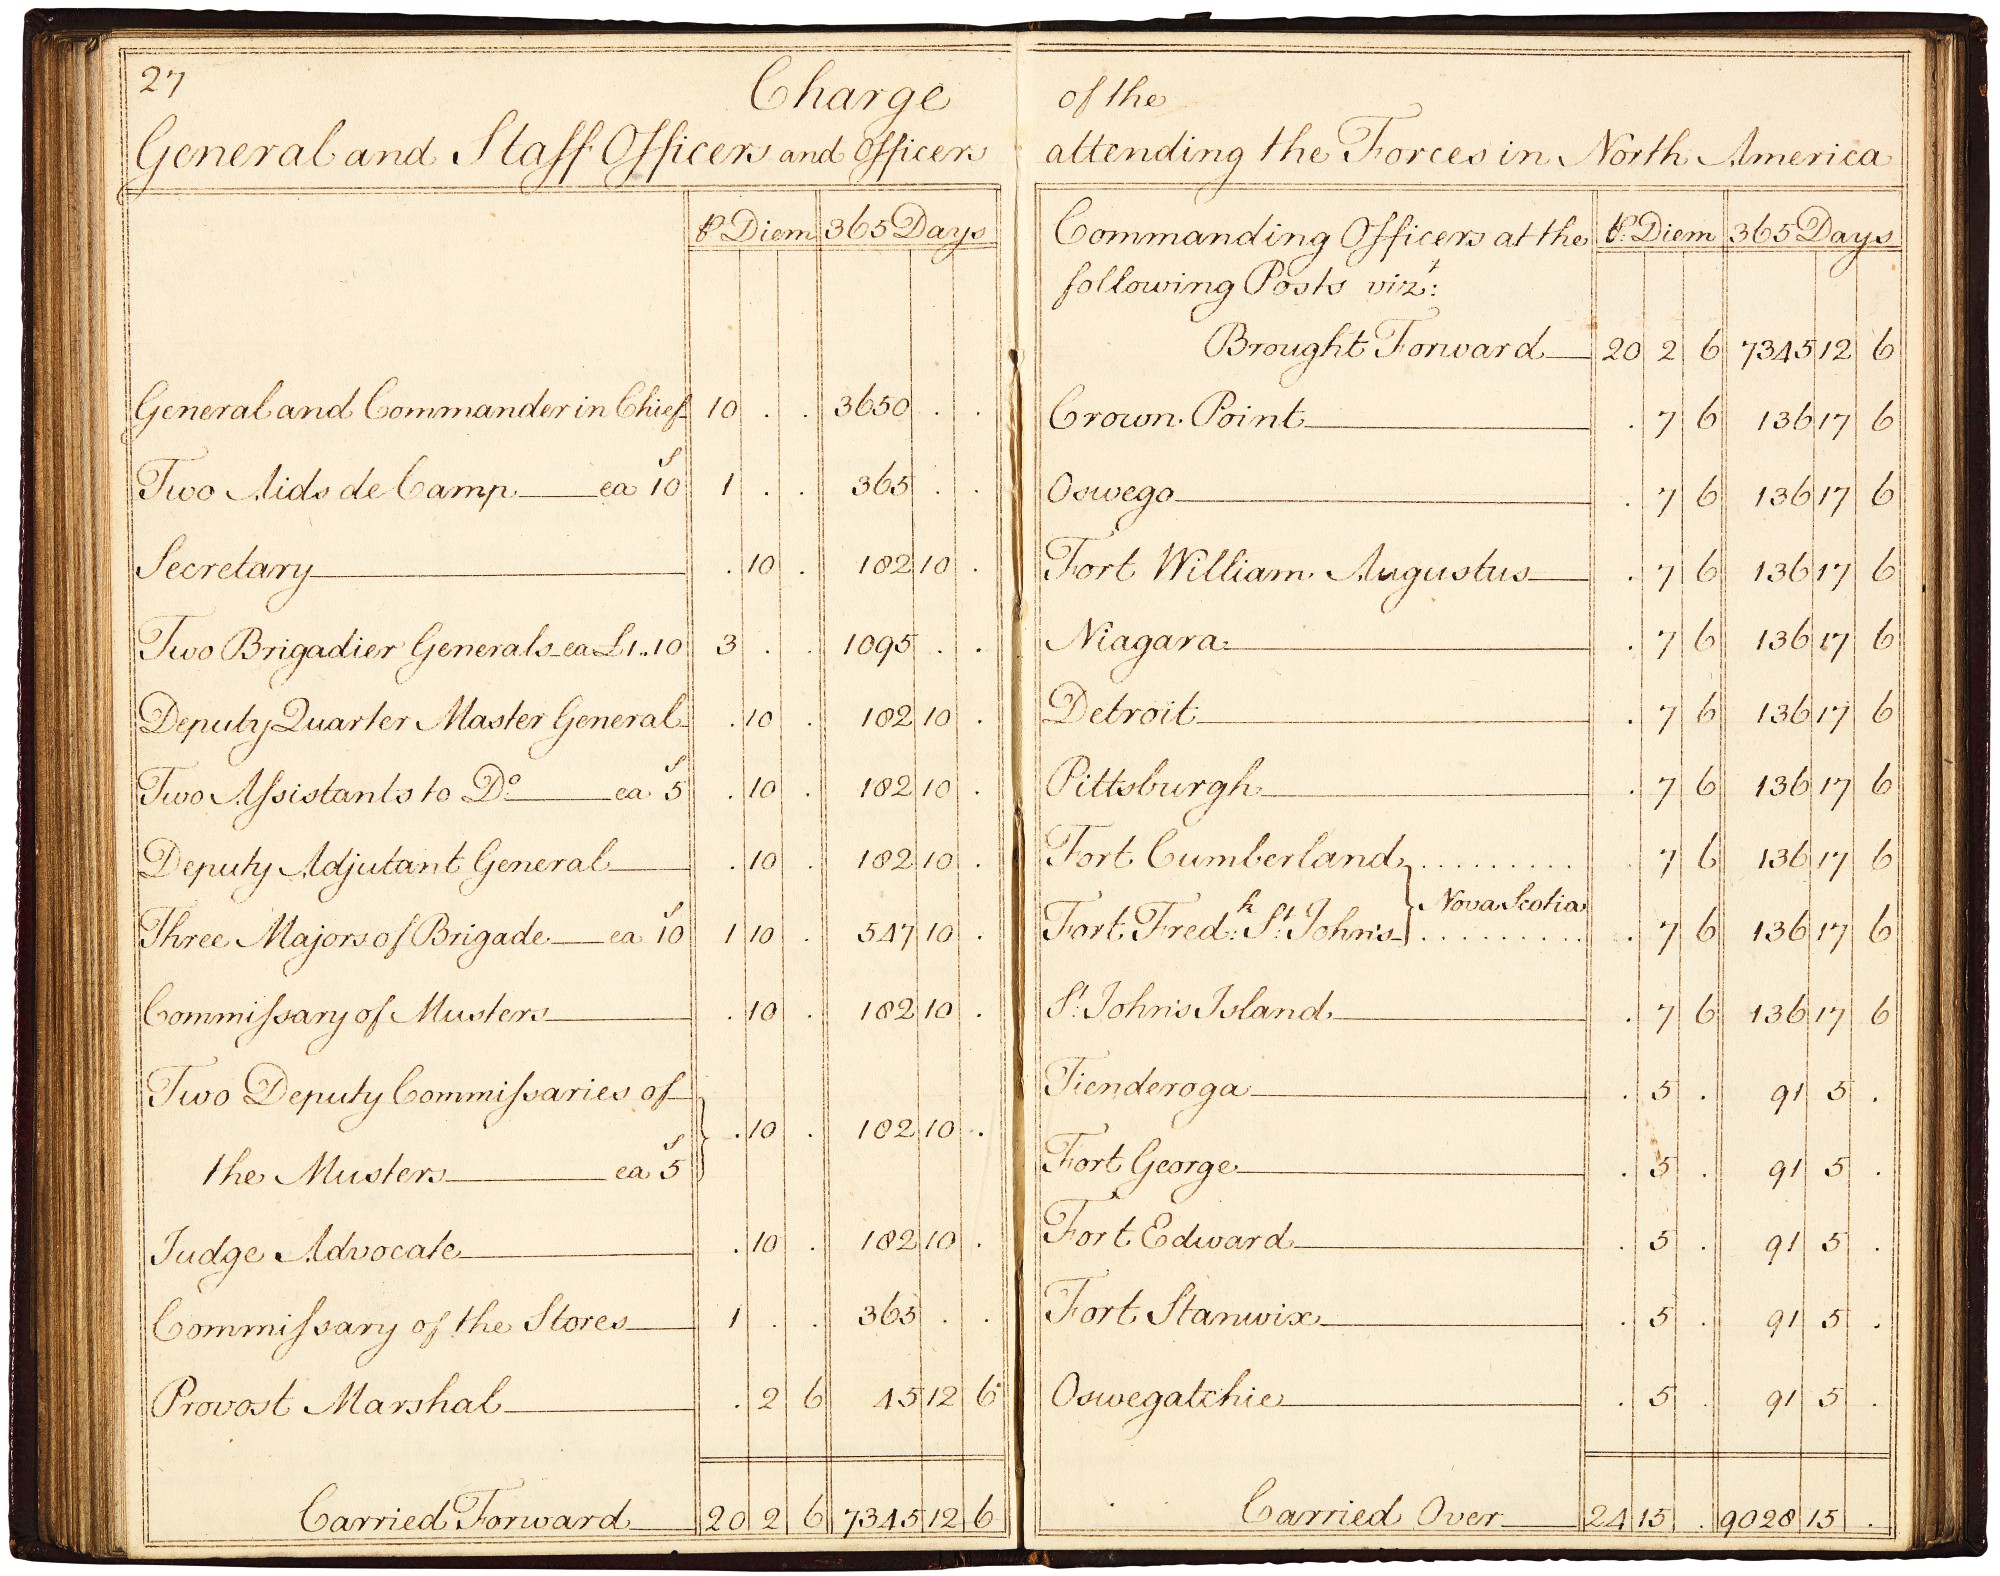 27
Charge
General and Staff Officers and Officers
℔ Diem 365 Days
General and Commander in Chief 10 . . 3650 . .
Two Aids de Camp ea 10ˢ 1 . . 365 . .
Secretary . 10 . 182 10 .
Two Brigadier Generals ea £1..10 3 . . 1095 . .
Deputy Quarter Master General . 10 . 182 10 .
Two Assistants to Dº ea 5ˢ . 10 . 182 10 .
Deputy Adjutant General . 10 . 182 10 .
Three Majors of Brigade ea 10ˢ 1 10 . 547 10 .
Commissary of Musters . 10 . 182 10 .
Two Deputy Commissaries of
the Musters ea 5ˢ } . 10 . 182 10 .
Judge Advocate . 10 . 182 10 .
Commissary of the Stores 1 . . 365 . .
Provost Marshal . 2 6 45 12 6
Carried Forward 20 2 6 7345 12 6
of the
attending the Forces in North America
Commanding Officers at the ℔: Diem 365 Days
following Posts vizᵗ:
Brought Forward 20 2 6 7345 12 6
Crown Point . 7 6 136 17 6
Oswego . 7 6 136 17 6
Fort William Augustus . 7 6 136 17 6
Niagara . 7 6 136 17 6
Detroit . 7 6 136 17 6
Pittsburgh . 7 6 136 17 6
Fort Cumberland . 7 6 136 17 6
} Nova Scotia
Fort Fredᵏ: Sᵗ: John's . 7 6 136 17 6
Sᵗ: John's Island . 7 6 136 17 6
Tienderoga . 5 . 91 5 .
Fort George . 5 . 91 5 .
Fort Edward . 5 . 91 5 .
Fort Stanwix . 5 . 91 5 .
Oswegatchie . 5 . 91 5 .
Carried Over 24 15 . 9028 15 .